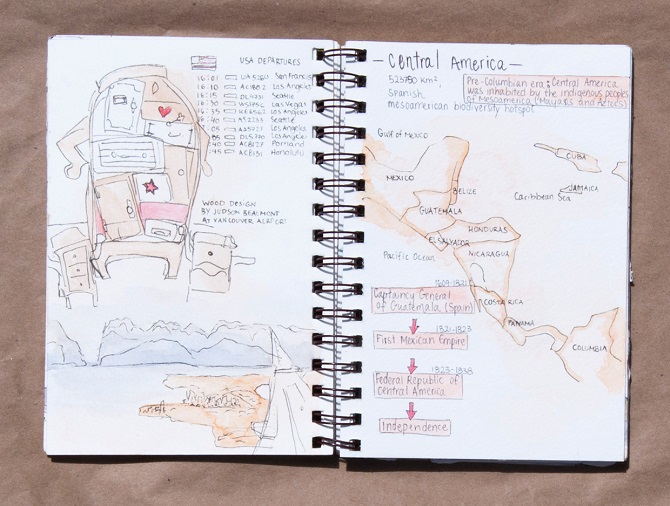 USA DEPARTURES
16:01 San Francis
16:10 Los Angeles
16:15 Seattle
16:30 Las Vegas
16:35 Los Angeles
16:40 Seattle
Los Angeles
Los Angeles
Portland
Honolulu
WOOD DESIGN
BY JUDSON BEAUMONT
AT VANCOUVER AIRPORT
- Central America -
525780 km²
Spanish
mesoamerican biodiversity hotspot
Pre-Columbian era: Central America
was inhabited by the indigenous peoples
of Mesoamerica (Mayans and Aztecs)
Gulf of Mexico
CUBA
MEXICO
BELIZE
JAMAICA
Caribbean Sea
GUATEMALA
HONDURAS
EL SALVADOR
Pacific Ocean
NICARAGUA
COSTA RICA
PANAMA
COLUMBIA
1609-1821
Captaincy General
of Guatemala (Spain)
1821-1823
First Mexican Empire
1823-1838
Federal Republic of
Central America
Independence